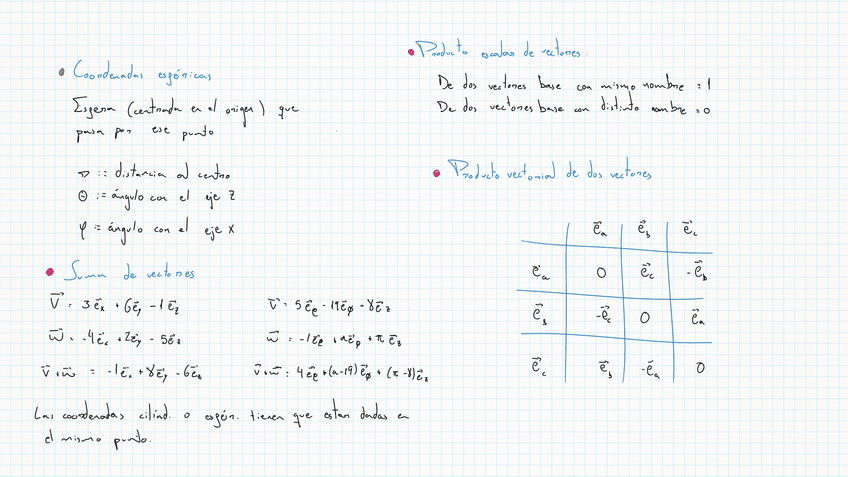 Coordenadas esféricas
Esfera (centrada en el origen) que
pasa por ese punto
r := distancia al centro
Θ := ángulo con el eje Z
φ := ángulo con el eje X
Suma de vectores
V⃗ = 3e⃗x + 6e⃗y - 1e⃗z
w⃗ = -4e⃗x + 2e⃗y - 5e⃗z
v⃗ + w⃗ = -1e⃗x + 8e⃗y - 6e⃗z
v⃗ = 5e⃗ρ - 19e⃗φ - 8e⃗z
w⃗ = -1e⃗ρ + ae⃗φ + πe⃗z
v⃗ + w⃗ = 4e⃗ρ + (a-19)e⃗φ + (π-8)e⃗z
Las coordenadas cilínd. o esfér. tienen que estar dadas en
el mismo punto.
Producto escalar de vectores.
De dos vectores base con mismo nombre = 1
De dos vectores base con distinto nombre = 0
Producto vectorial de dos vectores
e⃗a e⃗b e⃗c
e⃗a 0 e⃗c -e⃗b
e⃗b -e⃗c 0 e⃗a
e⃗c e⃗b -e⃗a 0